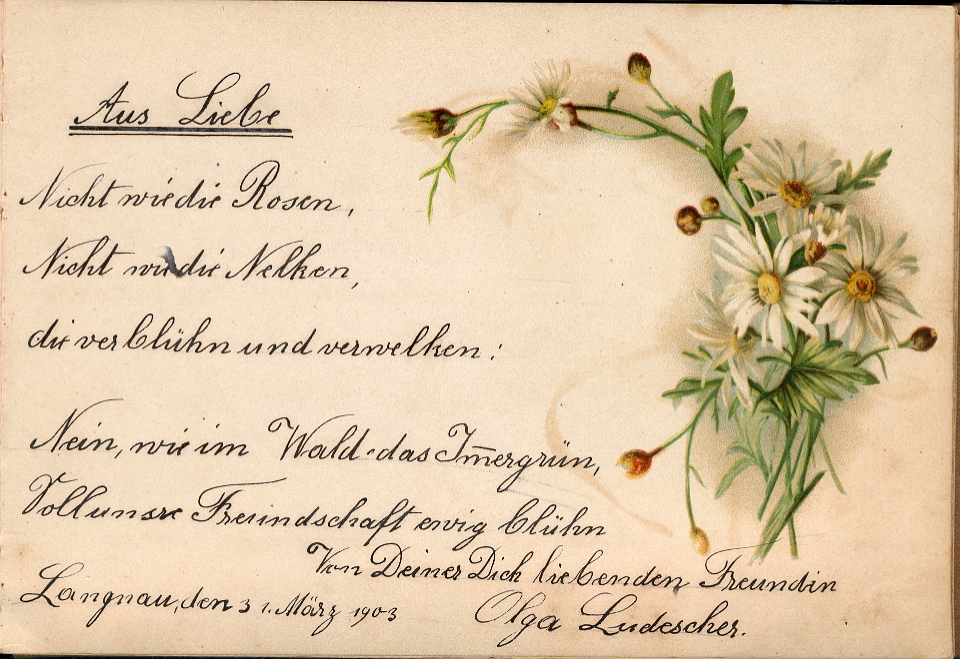 Aus Liebe
Nicht wie die Rosen,
Nicht wie die Nelken,
die verblühn und verwelken:
Nein, wie im Wald das Im̅ergrün,
Soll unsre Freundschaft ewig blühn
Von Deiner Dich liebenden Freundin
Langnau, den 31. März 1903
Olga Ludescher.